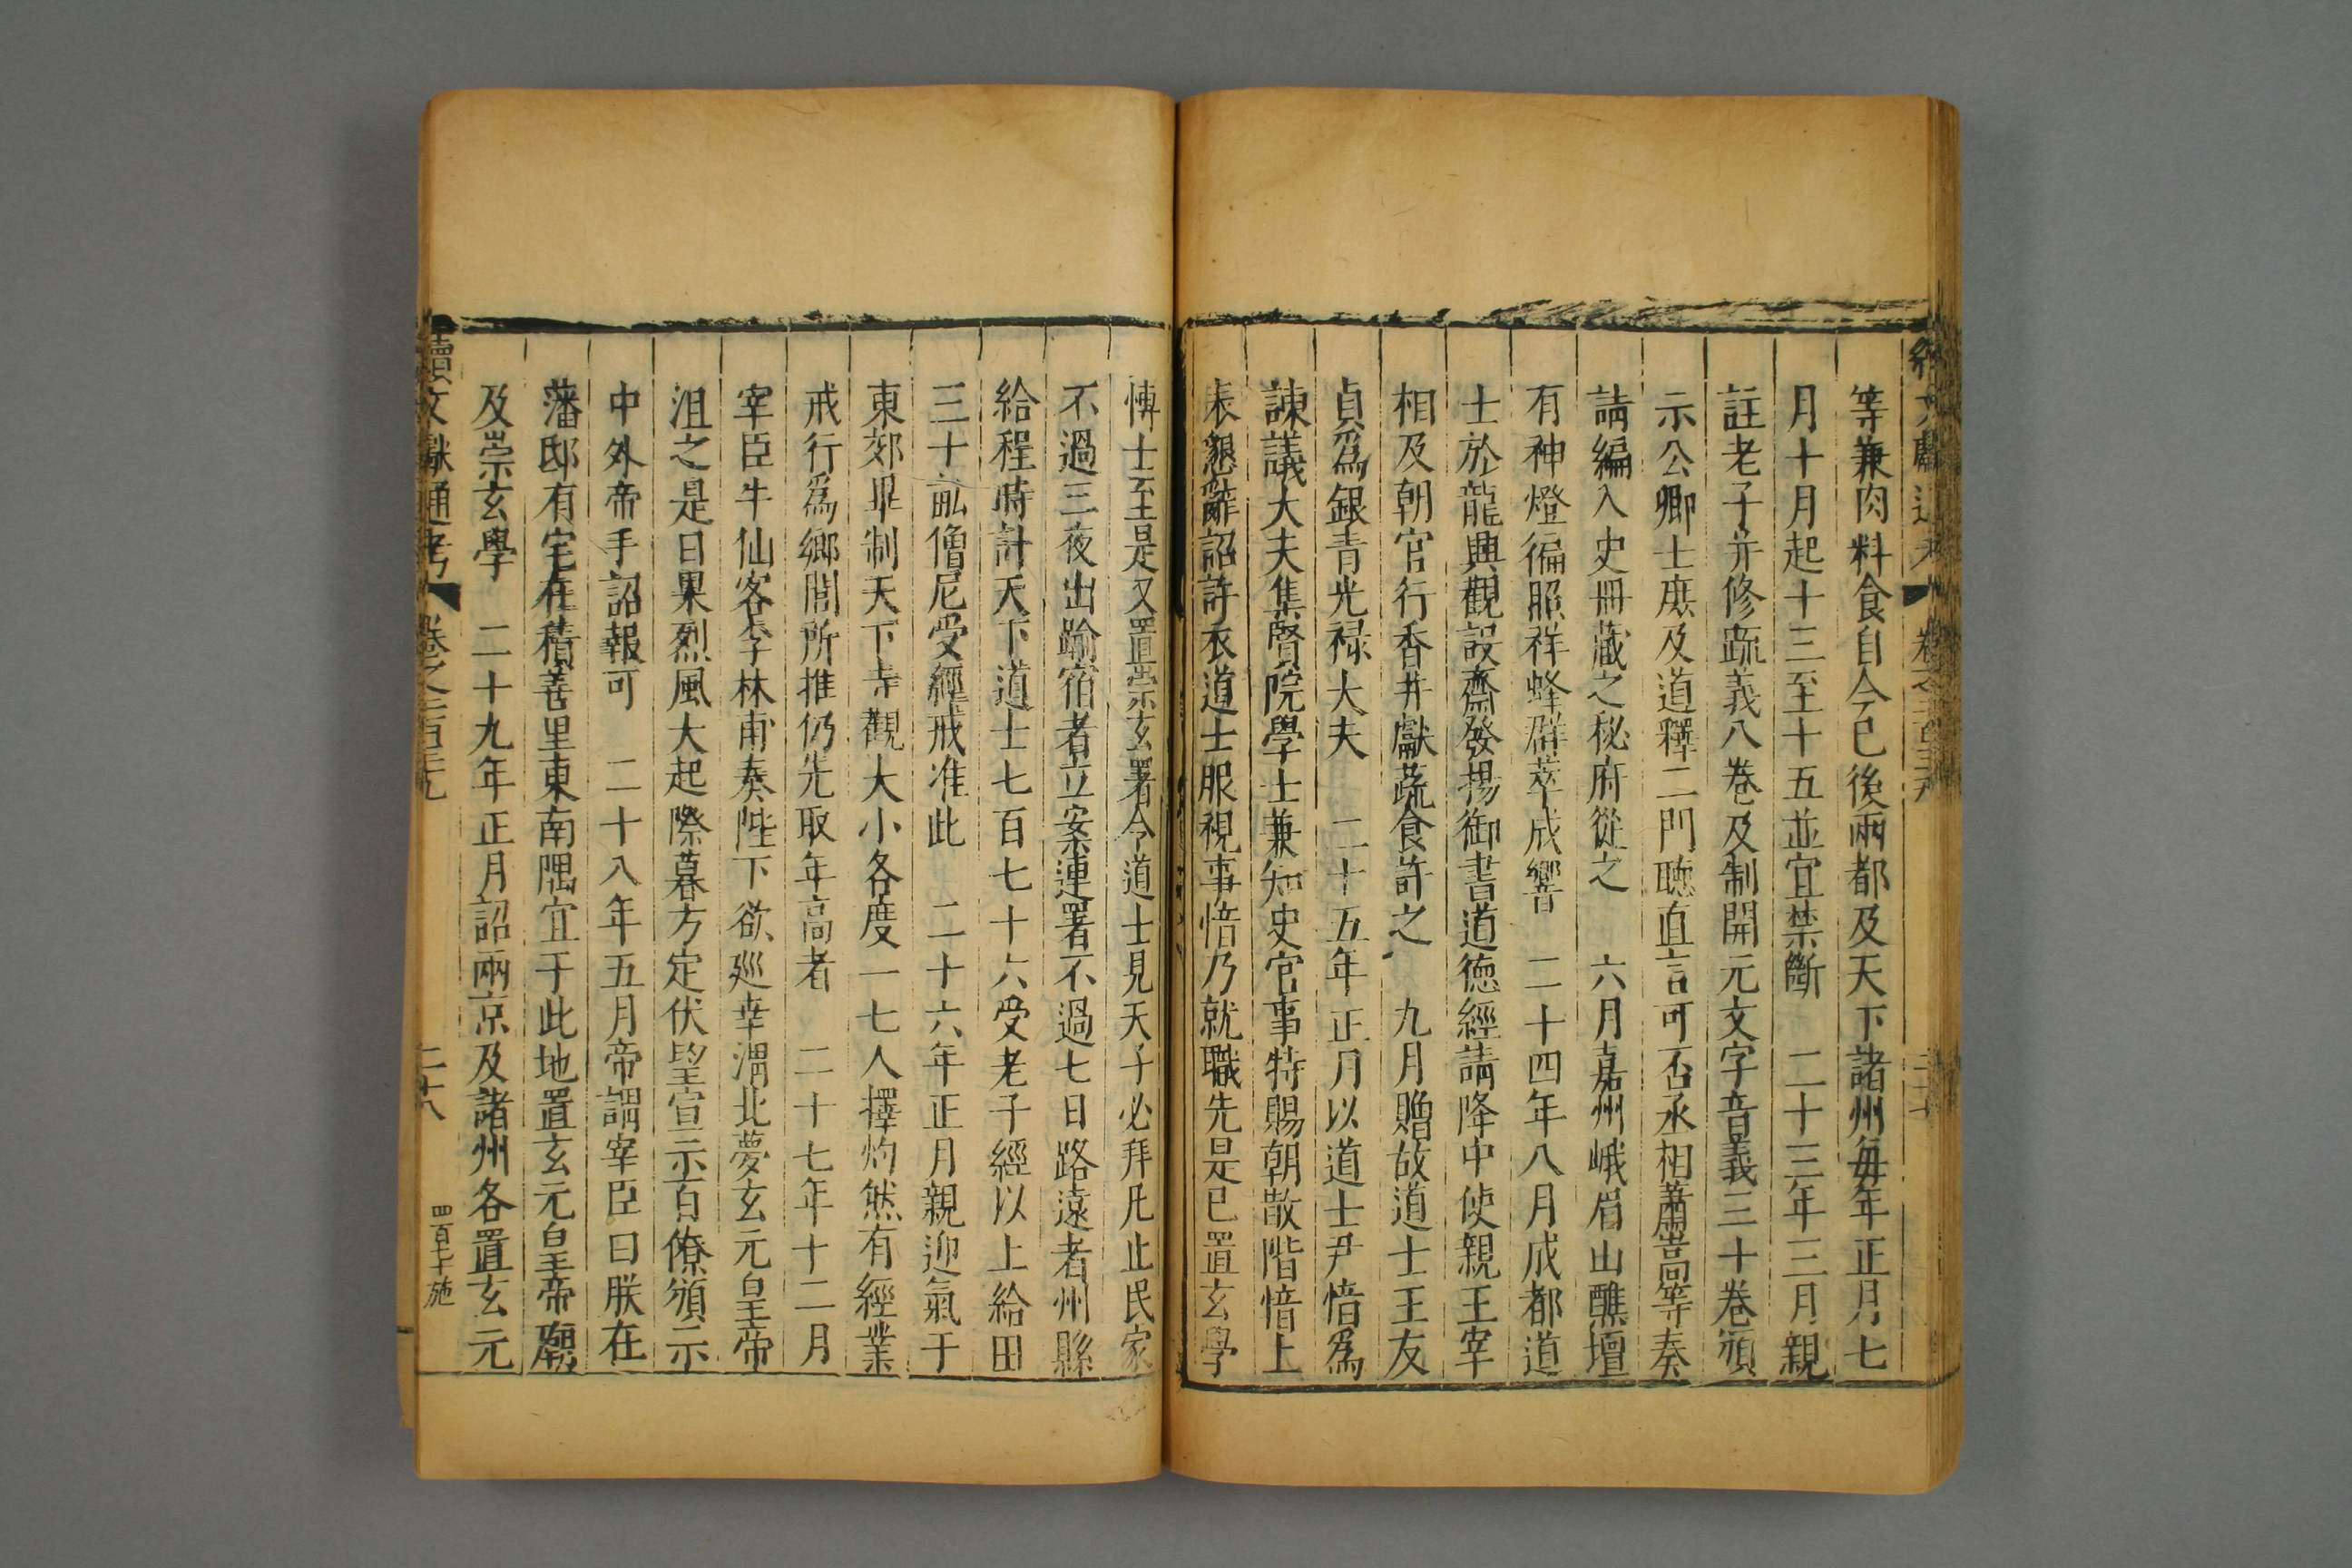 等兼肉料食自今已後兩都及天下諸州每年正月七
月十月起十三至十五並宜禁斷　二十三年三月親
註老子并修疏義八卷及制開元文字音義三十卷頒
示公卿士庶及道釋二門聽直言可否丞相蕭嵩等奏
請編入史冊藏之秘府從之　六月嘉州峨眉山醮壇
有神燈徧照祥蜂群萃成響　二十四年八月成都道
士於龍興觀設齋發揚御書道德經請降中使親王宰
相及朝官行香并獻蔬食許之　九月贈故道士王友
貞爲銀青光祿大夫　二十五年正月以道士尹愔爲
諫議大夫集賢院學士兼知史官事特賜朝散階愔上
表懇辭詔許衣道士服視事愔乃就職先是已置玄學
博士至是又置崇玄署令道士見天子必拜凡止民家
不過三夜出踰宿者立案連署不過七日路遠者州縣
給程時計天下道士七百七十六受老子經以上給田
三十畝僧尼受經戒准此　二十六年正月親迎氣于
東郊畢制天下寺觀大小各度一七人擇灼然有經業
戒行爲鄉閭所推仍先取年高者　二十七年十二月
宰臣牛仙客李林甫奏陛下欲廵幸渭北夢玄元皇帝
沮之是日果烈風大起際暮方定伏望宣示百僚頒示
中外帝手詔報可　二十八年五月帝謂宰臣曰朕在
藩邸有宅在積善里東南隅宜于此地置玄元皇帝廟
及崇玄學　二十九年正月詔兩京及諸州各置玄元
續文獻通考　卷之二百三九　二十八　四百七十施